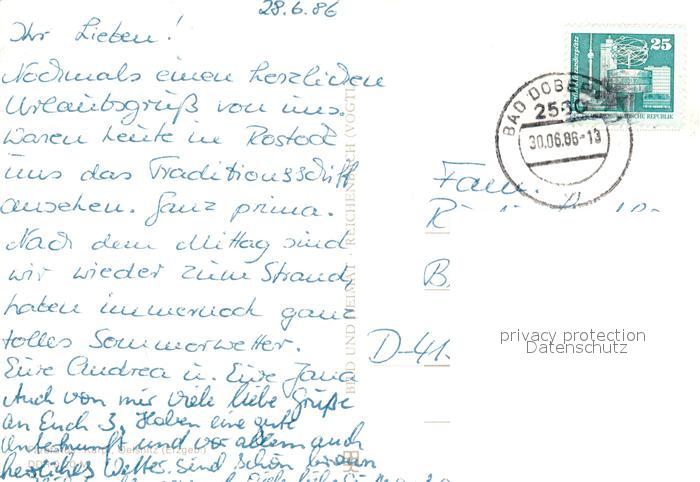 28.6.86
Ihr Lieben!
Nochmals einen herzlichen
Urlaubsgruß von uns.
Waren heute in Rostock
uns das Traditionsschiff
ansehen. Ganz prima.
Nach dem Mittag sind
wir wieder zum Strand,
haben immernoch ganz
tolles Sommerwetter.
Eure Andrea u. Eure Jana
Auch von mir viele liebe Grüße
an Euch 3. Haben eine gute
Unterkunft und vor allem auch
herrliches Wetter. sind schön braun
BILD UND HEIMAT · REICHENBACH (VOGTL
(Erzgeb.)
25
BAD DOBE
2560
30.06.86-13
Fam.
R
B
D-41
privacy protection
Datenschutz